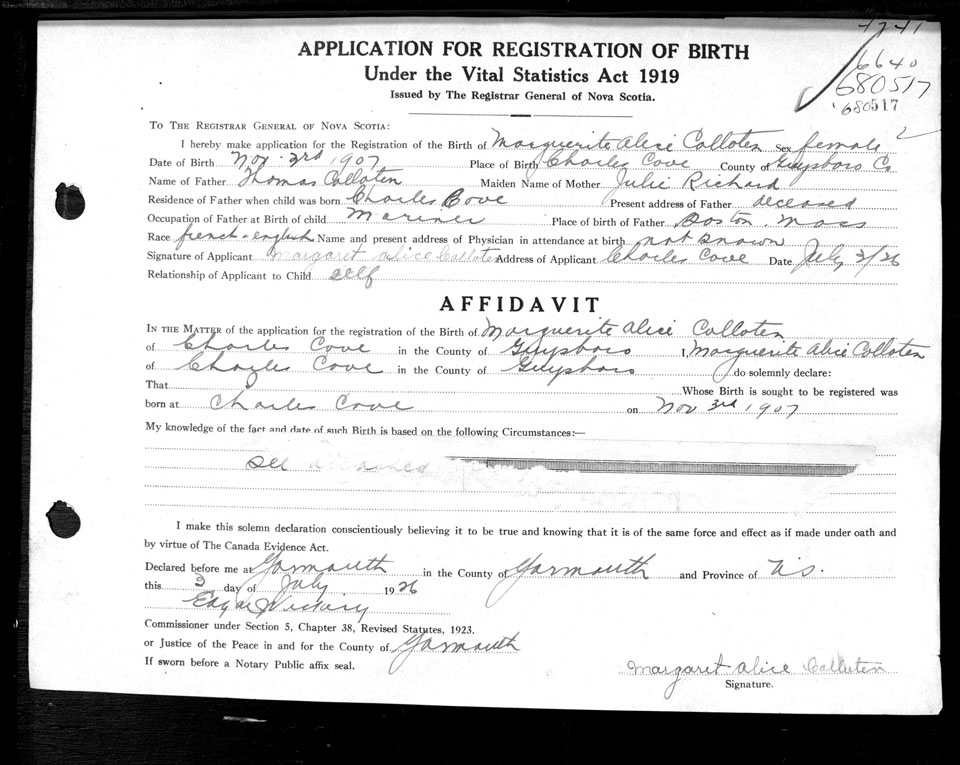 4241
6640
680517
680517
2
APPLICATION FOR REGISTRATION OF BIRTH
Under the Vital Statistics Act 1919
Issued by The Registrar General of Nova Scotia.
To The Registrar General of Nova Scotia:
I hereby make application for the Registration of the Birth of Marguerite Alice Colloten Sex female
Date of Birth Nov. 3rd 1907 Place of Birth Charles Cove County of Guysboro Co
Name of Father Thomas Colloten Maiden Name of Mother Julie Richard
Residence of Father when child was born Charles Cove Present address of Father deceased
Occupation of Father at Birth of child Mariner Place of birth of Father Boston. Mass
Race french-english Name and present address of Physician in attendance at birth not known
Signature of Applicant Margaret Alice Colloten Address of Applicant Charles Cove Date July 2/26
Relationship of Applicant to Child self
AFFIDAVIT
In the Matter of the application for the registration of the Birth of Marguerite Alice Colloten
of Charles Cove in the County of Guysboro I, Marguerite Alice Colloten
of Charles Cove in the County of Guysboro do solemnly declare:
That I Whose Birth is sought to be registered was
born at Charles Cove on Nov 3rd 1907
My knowledge of the fact and date of such Birth is based on the following Circumstances:—
See attached
I make this solemn declaration conscientiously believing it to be true and knowing that it is of the same force and effect as if made under oath and
by virtue of The Canada Evidence Act.
Declared before me at Yarmouth in the County of Yarmouth and Province of N.S.
this 2 day of July 1926
Edgar J Vickery
Commissioner under Section 5, Chapter 38, Revised Statutes, 1923.
or Justice of the Peace in and for the County of Yarmouth
If sworn before a Notary Public affix seal.
Margaret Alice Colloten
Signature.